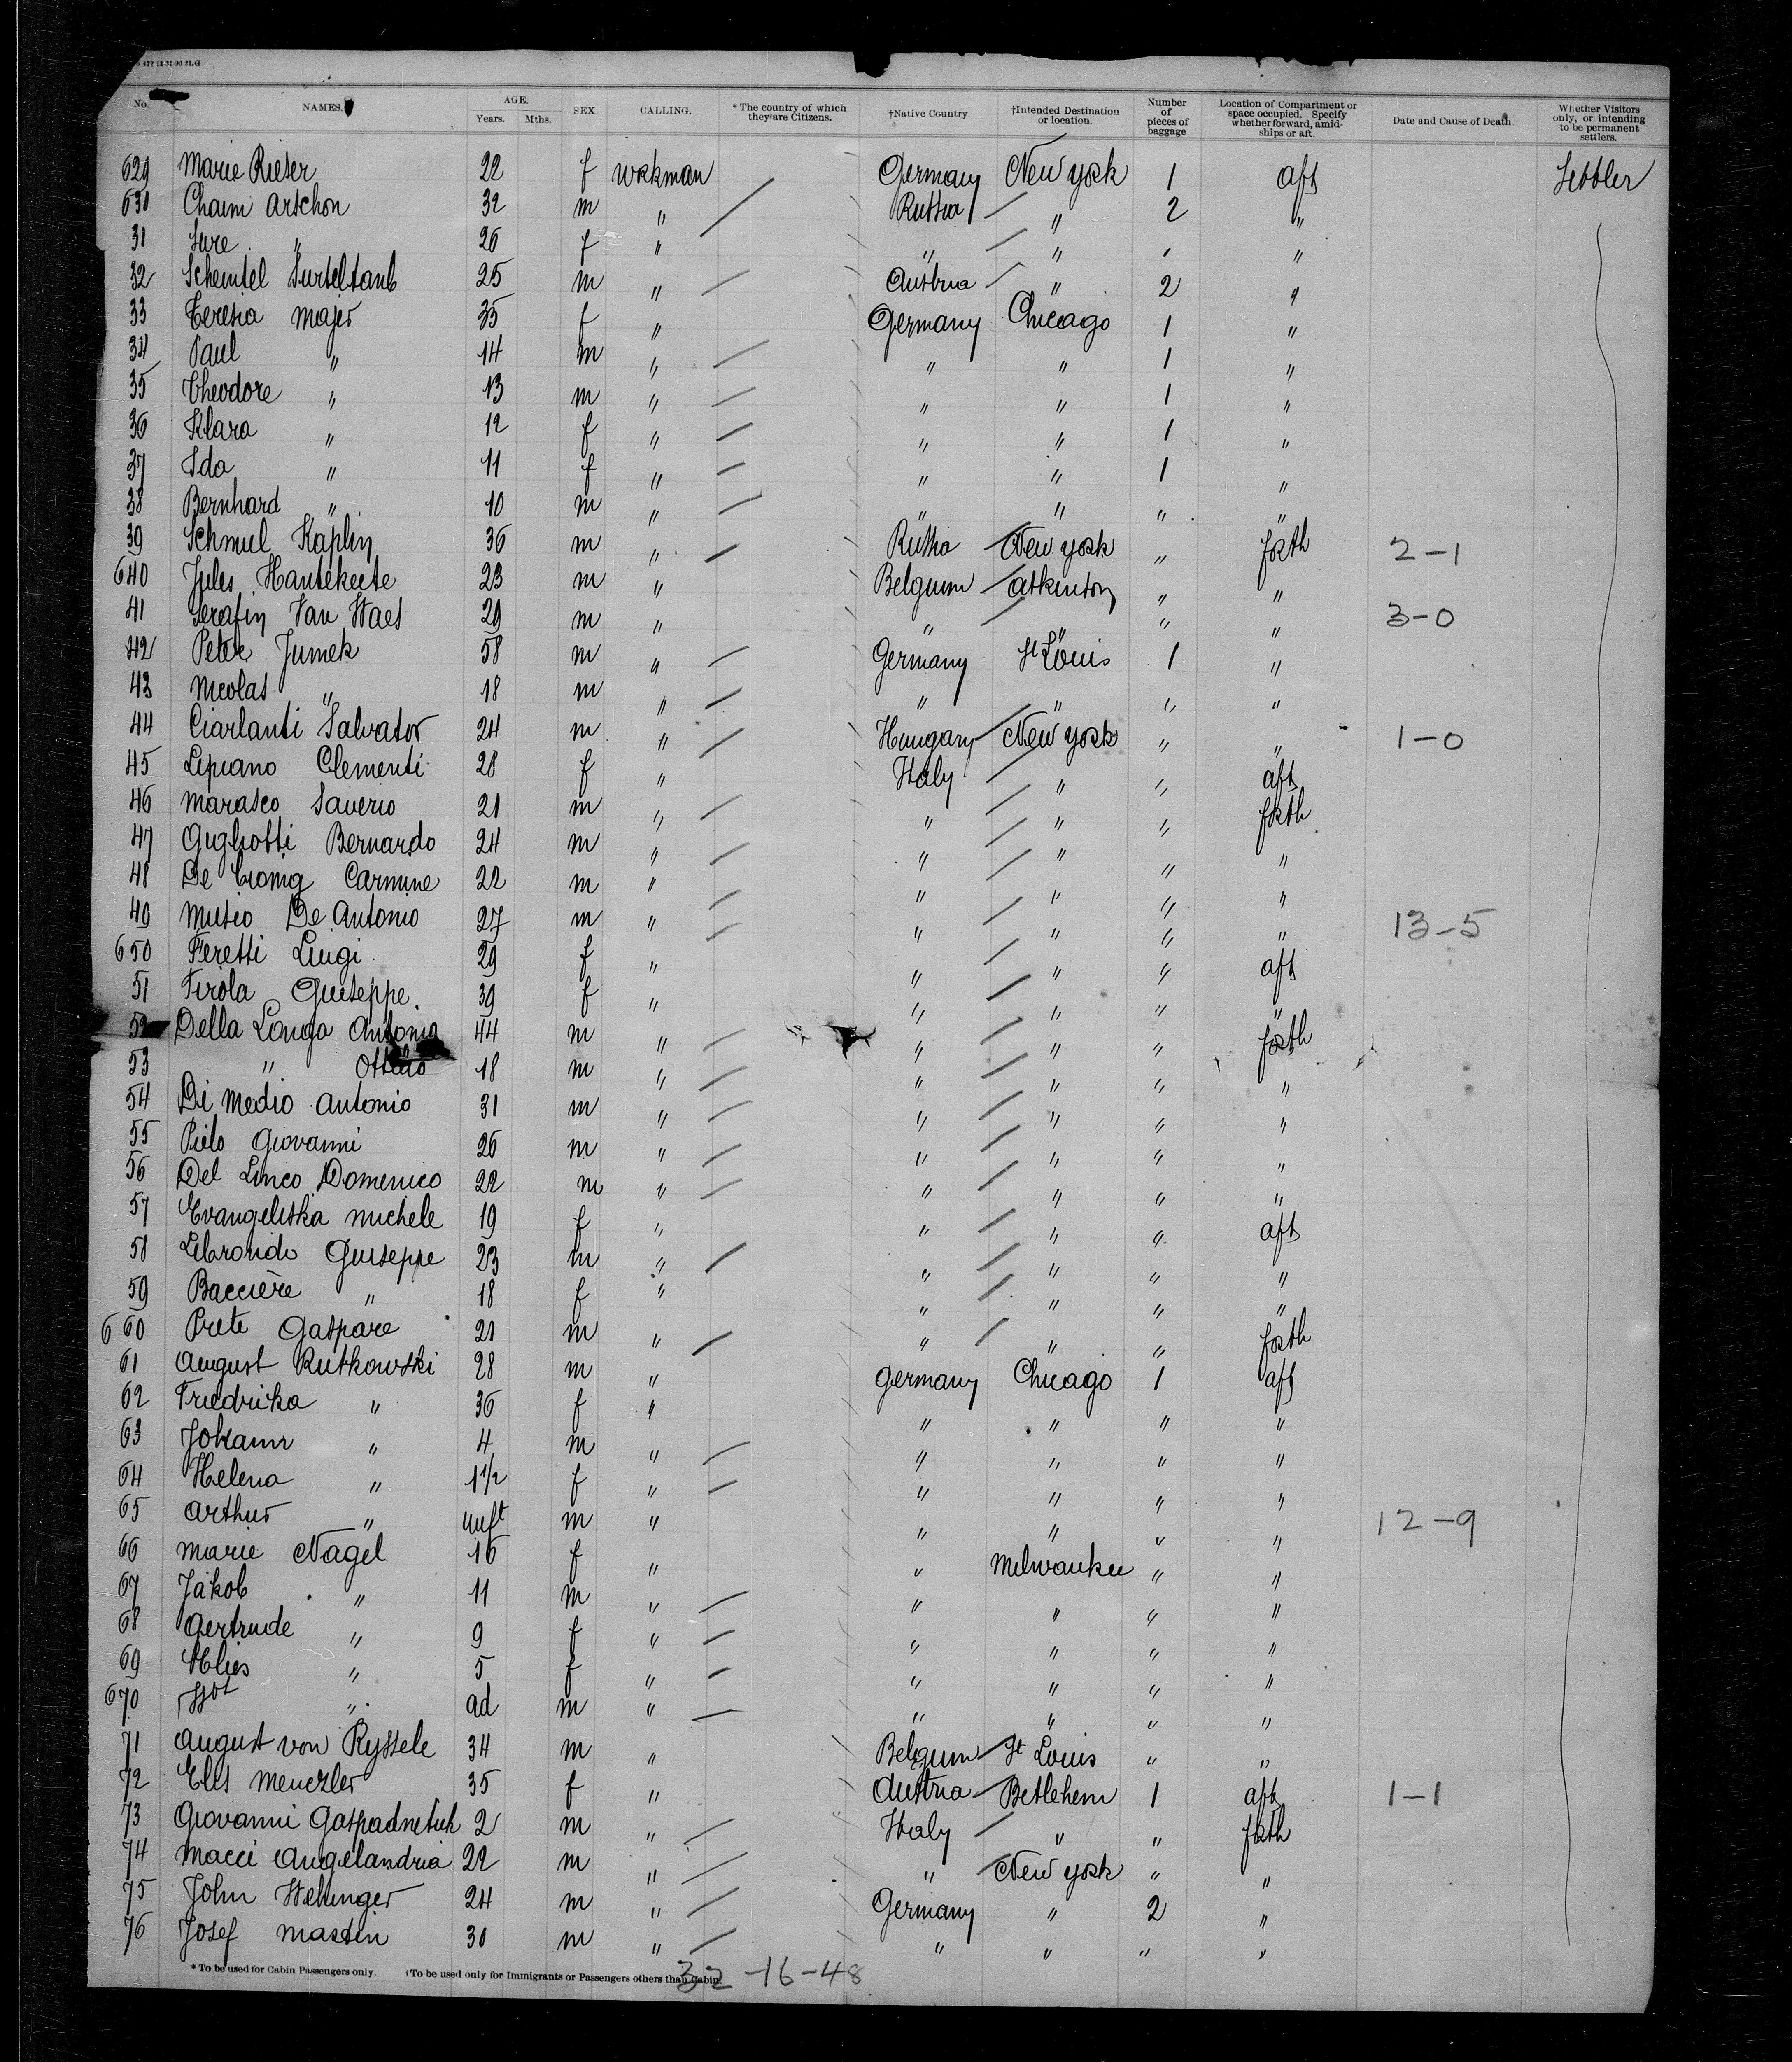 No. NAMES. AGE. Years. Mths. SEX. CALLING. *The country of which they are Citizens. †Native Country †Intended Destination or location. Number of pieces of baggage Location of Compartment or space occupied. Specify whether forward, amidships or aft. Date and Cause of Death Whether Visitors only, or intending to be permanent settlers.
629 Marie Rieser 22 f workman Germany New york 1 aft Settler
630 Chaim Artschon 32 m " Russia " 2 "
31 Sure " 26 f " " " " "
32 Scheintel Turteltaub 25 m " Austria " 2 "
33 Teresia Majer 35 f " Germany Chicago 1 "
34 Paul " 14 m " " " 1 "
35 Theodore " 13 m " " " 1 "
36 Klara " 12 f " " " 1 "
37 Ida " 11 f " " " 1 "
38 Bernhard " 10 m " " " " "
39 Schmul Kaplin 36 m " Russia New york " forth 2-1
640 Jules Hantekeete 23 m " Belgium Atkinson " "
41 Serafin Van Waes 29 m " " " " " 3-0
42 Peter Jumek 58 m " Germany St Louis 1 "
43 Nicolas " 18 m " " " " "
44 Ciarlanti Salvator 24 m " Hungary New york " " 1-0
45 Lipiano Clementi 28 f " Italy " " aft
46 Marasco Saverio 21 m " " " " forth
47 Gugliotti Bernardo 24 m " " " " "
48 De Carmine 22 m " " " " "
49 Musio De Antonio 27 m " " " " " 13-5
650 Feretti Luigi 29 f " " " " aft
51 Tirola Guiseppe 39 f " " " " "
52 Della Longa Antonia 44 m " " " " forth
53 " 18 m " " " " "
54 Di Medio Antonio 31 m " " " " "
55 Pielo Giovanni 26 m " " " " "
56 Del Linco Domenico 22 m " " " " "
57 Evangelitska Michele 19 f " " " " aft
58 Librondo Guiseppe 23 m " " " " "
59 Baccière " 18 f " " " " "
660 Prete Gaspare 21 m " " " " forth
61 August Rutkowski 28 m " Germany Chicago 1 aft
62 Fredrika " 36 f " " " " "
63 Johann " 4 m " " " " "
64 Helena " 1 1/2 f " " " " "
65 Arthur " inft m " " " " " 12-9
66 Marie Nagel 16 f " " Milwaukee " "
67 Jakob " 11 m " " " " "
68 Gertrude " 9 f " " " " "
69 " 5 f " " " " "
670 " ad m " " " " "
71 August von Ryssele 34 m " Belgium St Louis " "
72 Elis Menczler 35 f " Austria Betlehem 1 aft 1-1
73 Giovanni Gospadnetich 2 m " Italy " " forth
74 Macci Angelandria 22 m " " New york " "
75 John Wettinger 24 m " Germany " 2 "
76 Josef Masten 30 m " " " " "
*To be used for Cabin Passengers only. †To be used only for Immigrants or Passengers others than Cabin.
32-16-48